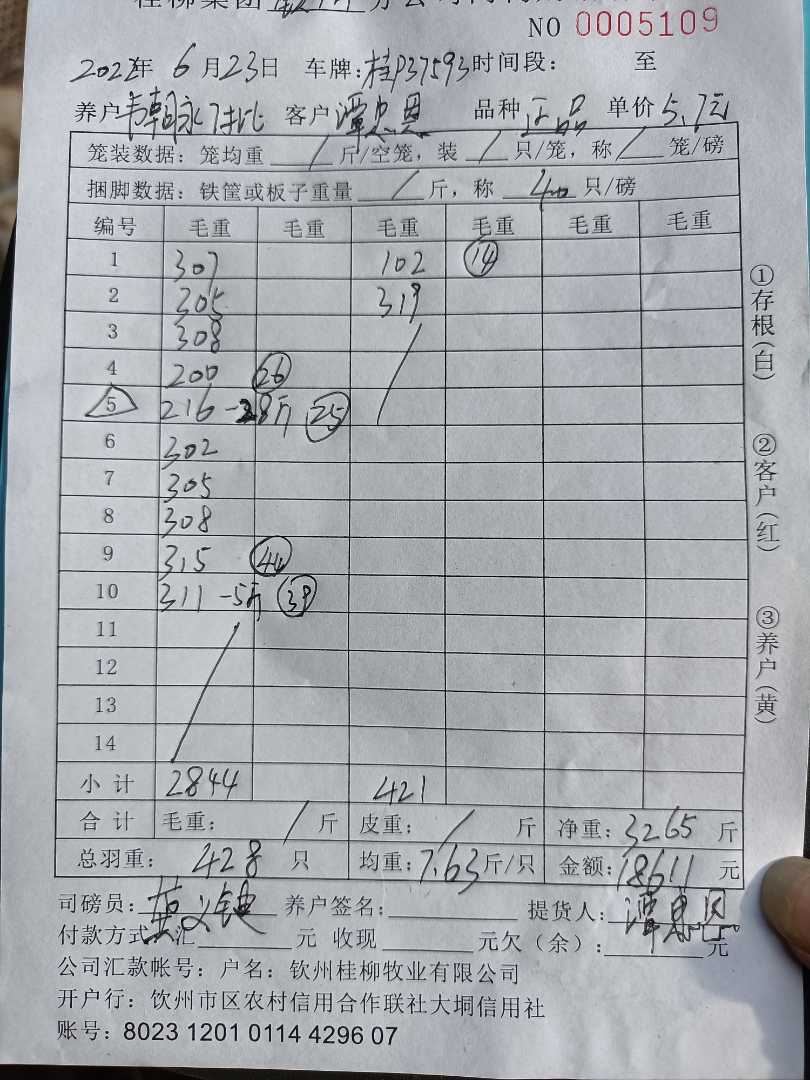 桂柳集团 分公司
NO 0005109
2022年 6月23日 车牌:桂P37593 时间段: 至
养户 韦朝 客户 谭忠恩 品种 正品 单价 5.7元
笼装数据: 笼均重 / 斤/空笼, 装 / 只/笼, 称 / 笼/磅
捆脚数据: 铁筐或板子重量 / 斤, 称 40 只/磅
编号 毛重 毛重 毛重 毛重 毛重 毛重
1 307 102 14
2 305 319
3 308
4 200 26
5 216 -28斤 25
6 302
7 305
8 308
9 315 44
10 311 -5斤 39
11
12
13
14
小计 2844 421
合计 毛重: / 斤 皮重: / 斤 净重: 3265 斤
总羽重: 428 只 均重: 7.63 斤/只 金额: 18611 元
司磅员: 养户签名: 提货人: 谭忠恩
付款方式: 汇 元 收现 元欠(余): 元
公司汇款帐号: 户名: 钦州桂柳牧业有限公司
开户行: 钦州市区农村信用合作联社大垌信用社
账号: 8023 1201 0114 4296 07
①存根(白)
②客户(红)
③养户(黄)